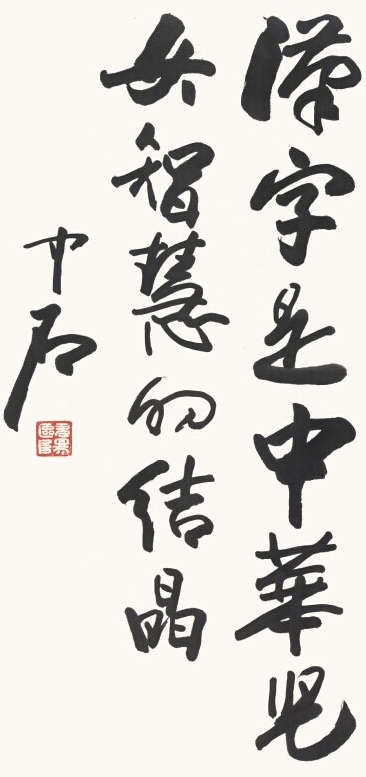 漢字是中華児
女智慧的结晶
中石